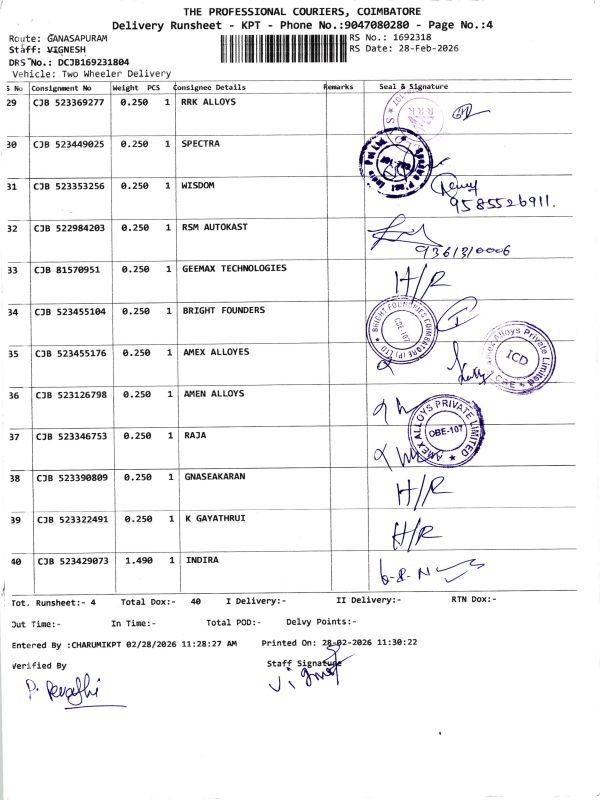 THE PROFESSIONAL COURIERS, COIMBATORE
Delivery Runsheet - KPT - Phone No.:9047080280 - Page No.:4
Route: GANASAPURAM RS No.: 1692318
Staff: VIGNESH RS Date: 28-Feb-2026
DRS No.: DCJB169231804
Vehicle: Two Wheeler Delivery
S No Consignment No Weight PCS Consignee Details Remarks Seal & Signature
29 CJB 523369277 0.250 1 RRK ALLOYS
30 CJB 523449025 0.250 1 SPECTRA
31 CJB 523353256 0.250 1 WISDOM
9585526911.
32 CJB 522984203 0.250 1 RSM AUTOKAST
33 CJB 81570951 0.250 1 GEEMAX TECHNOLOGIES H/R
34 CJB 523455104 0.250 1 BRIGHT FOUNDERS
BRIGHT FOUNDRIES COIMBATORE (P) LTD
CBE-107
35 CJB 523455176 0.250 1 AMEX ALLOYES
Amex Alloys Private Limited
ICD
CBE
36 CJB 523126798 0.250 1 AMEN ALLOYS
AMEX ALLOYS PRIVATE LIMITED
CBE-107
37 CJB 523346753 0.250 1 RAJA
38 CJB 523390809 0.250 1 GNASEAKARAN H/R
39 CJB 523322491 0.250 1 K GAYATHRUI H/R
40 CJB 523429073 1.490 1 INDIRA
Tot. Runsheet:- 4 Total Dox:- 40 I Delivery:- II Delivery:- RTN Dox:-
Out Time:- In Time:- Total POD:- Delvy Points:-
Entered By :CHARUMIKPT 02/28/2026 11:28:27 AM Printed On: 28-02-2026 11:30:22
Verified By Staff Signature